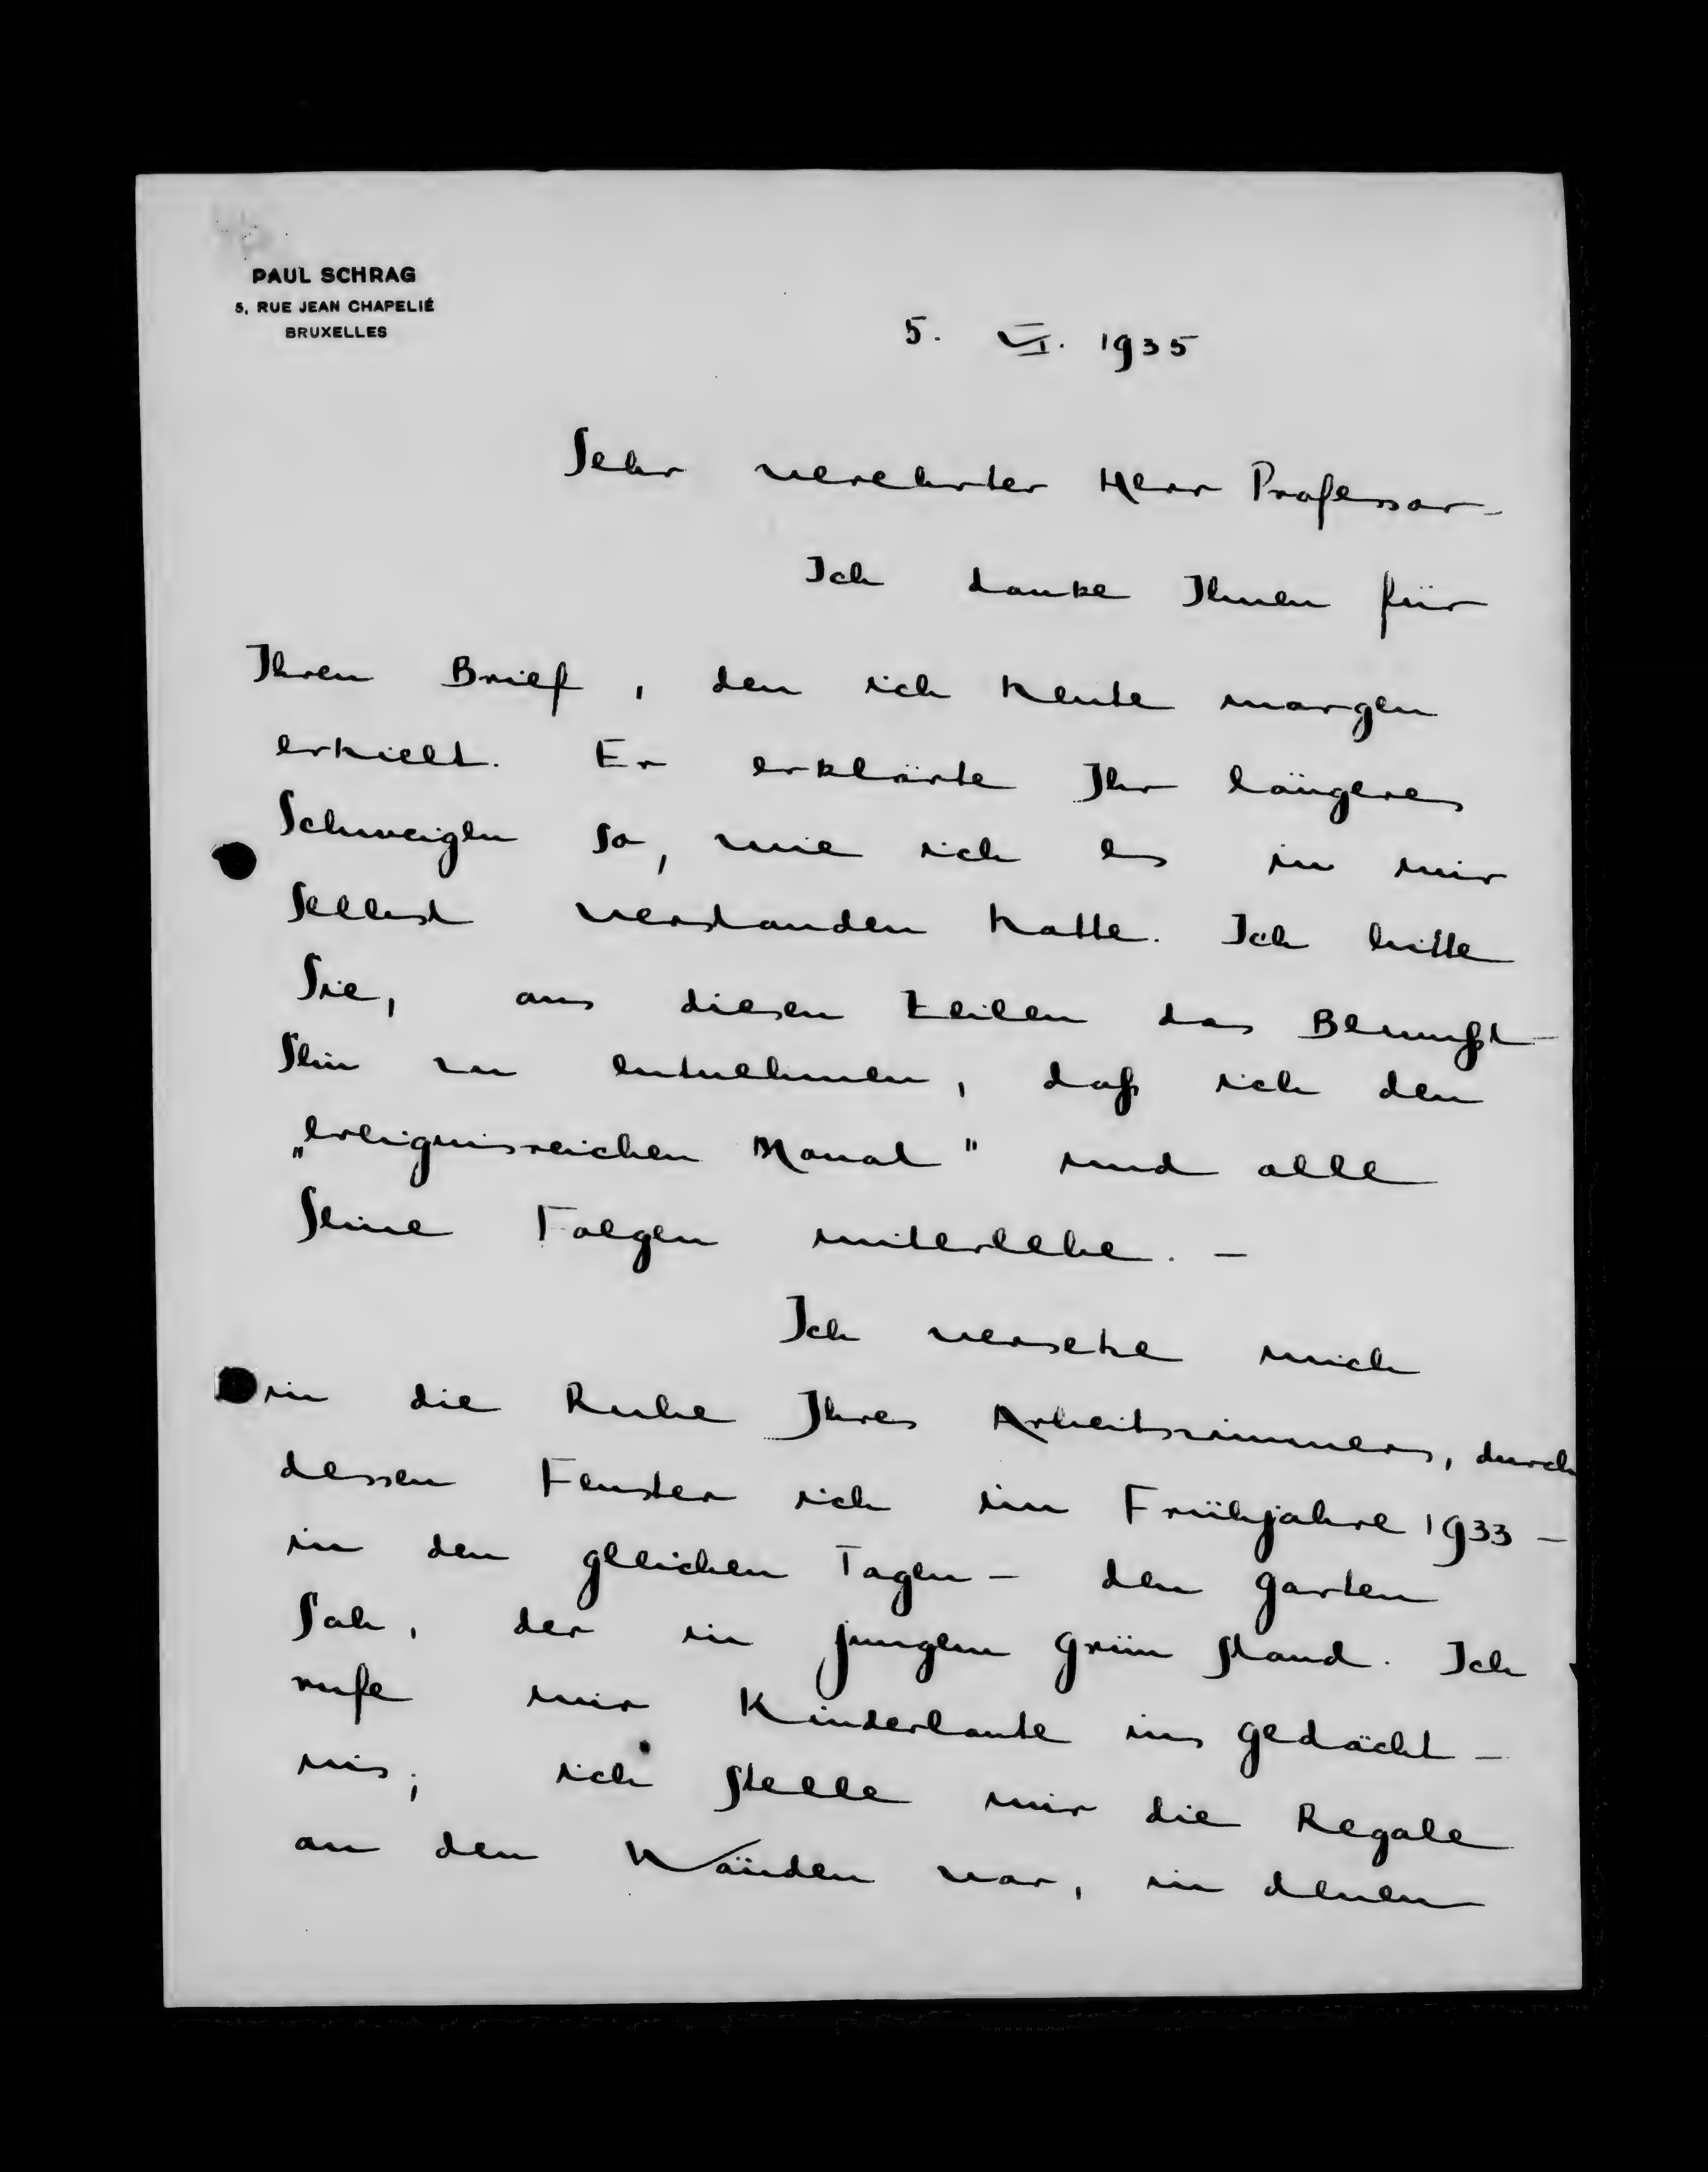 PAUL SCHRAG
5, RUE JEAN CHAPELIÉ
BRUXELLES
5. VI. 1935
Sehr verehrter Herr Professor –
Ich danke Ihnen für
Ihren Brief, den ich heute morgen
erhielt. Er erklärte Ihr längeres
Schweigen so, wie ich es in mir
selbst verstanden hatte. Ich bitte
Sie, aus diesen Zeilen das Bewußt-
sein zu entnehmen, daß ich den
„ereignisreichen Monat" und alle
seine Folgen miterlebe. –
Ich versetze mich
in die Ruhe Ihres Arbeitszimmers, durch
dessen Fenster ich im Frühjahre 1933 –
in den gleichen Tagen – den Garten
sah, der in jungem Grün stand. Ich
rufe mir Kinderlaute ins Gedächt-
nis; ich stelle mir die Regale
an den Wänden vor, in denen